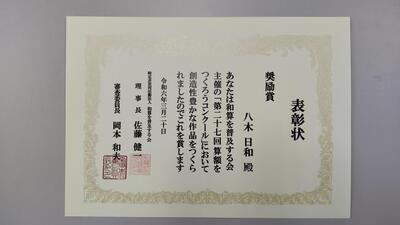 表彰状
奨励賞
八木 日和 殿
あなたは和算を普及する会
主催の「第二十七回算額を
つくろうコンクール」において
創造性豊かな作品をつくら
れましたのでこれを賞します
令和六年三月二十日
理事長 佐藤 健一
審査委員長 岡本 和夫